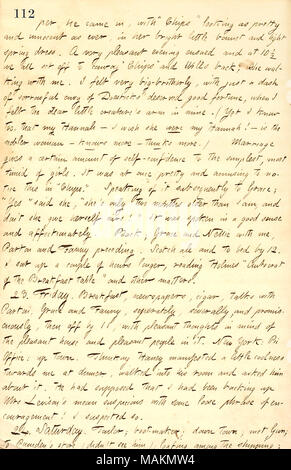 112
per, he came in, with "Chips" looking as pretty
and innocent as ever in her bright little bonnet and light
spring dress. A very pleasant evening ensued and at 10½
we all set off to convoy "Chips" and Wells back; she wal-
king with me. I felt very big-brotherly, with just a dash
of sorrowful envy of deserved good fortune, when I
felt the dear little creature's arm in mine. (Yet I know
too, that my Hannah — I wish she were my Hannah! — is the
nobler woman — knows more — thinks more.) Marriage
gives a certain amount of self-confidence to the simplest, most
timid of girls. It was at once pretty and amusing to no-
tice this in "Chips." Speaking of it subsequently to Grace;
"Yes" said she, "she's only two months older than I am and
don't she give herself airs!" It was spoken in a good sense
and affectionately. Back, Grace and Nellie with me,
Parton and Fanny preceding. Scotch ale and to bed by 12.
I sat up a couple of hours longer, reading Holmes' "Autocrat
of the Breakfast table" and other matters.
23. Friday. Breakfast, newspapers, cigar, talks with
Parton, Grace and Fanny, separately, severally and promis-
cuously, then off by 11, with pleasant thoughts in mind of
the pleasant house and pleasant people in it. New York. Pic
Office; up town. Thinking Haney manifested a little coolness
towards me at dinner, walked into his room and asked him
about it. He had supposed that I had been backing up
Mrs Levison's mean suspicions with some loose phrase of en-
couragement! I suspected so.
24. Saturday. Tailor, bootmaker, down town, met Gun,
to store (didn't see him) looking among the shipping;
alamy
Image ID: MAKMW4
www.alamy.com